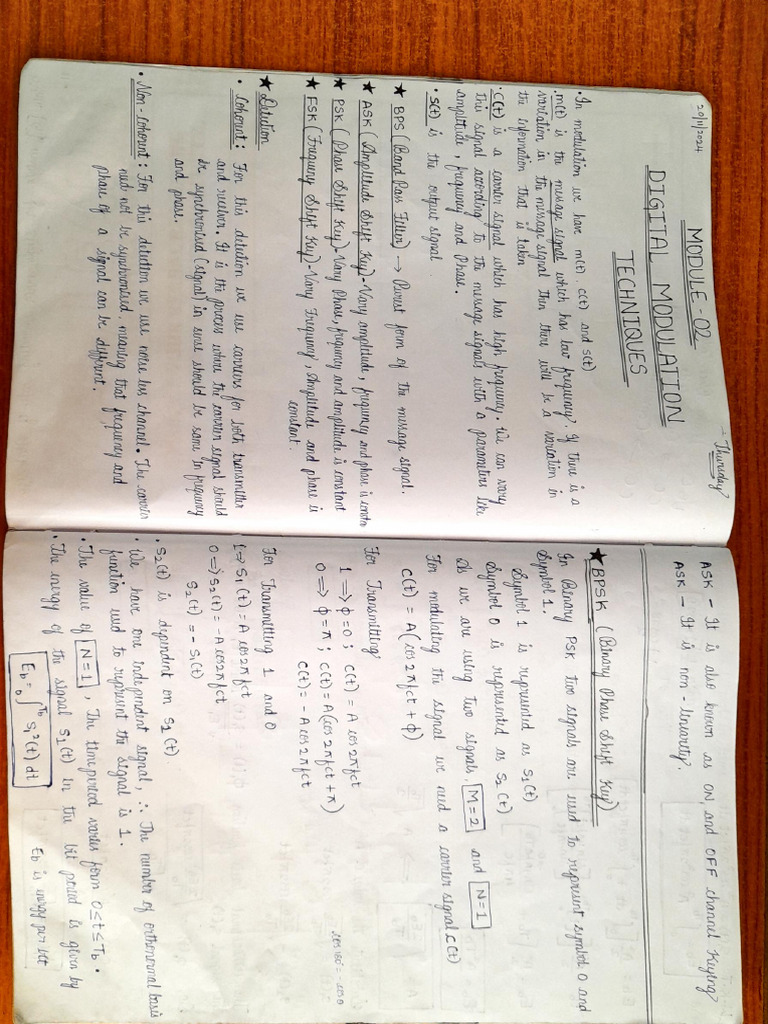 20/11/2024
- Thursday
MODULE-02
DIGITAL MODULATION
TECHNIQUES
• In modulation we have m(t), c(t) and s(t)
• m(t) is the message signal which has low frequency. If there is a
variation in the message signal then there will be a variation in
the information that is taken
• c(t) is a carrier signal which has high frequency. We can vary
this signal according to the message signals with a parameters like
amplitude, frequency and Phase.
• s(t) is the output signal
★ BPS (Band Pass Filter) → Purest form of the message signal.
★ ASK (Amplitude Shift Key)-Vary amplitude, frequency and phase is
★ PSK (Phase Shift Key)-Vary Phase, frequency and amplitude is constant
★ FSK (Frequency Shift Key)-Vary Frequency, Amplitude and phase is
constant.
★ Detection
• Coherent: For this detection we use carriers for both transmitter
and receiver. It is the process where the carrier signal should
be synchronised (signal) in sense should be same in frequency
and phase.
• Non-coherent: For this detection we use noise less channel. The carrier
need not be synchronised, meaning that frequency and
phase of a signal can be different.
ASK - It is also known as ON and OFF channel Keying
ASK - It is non-linearity.
★ BPSK (Binary Phase Shift Key)
In Binary PSK two signals are used to represent symbol 0 and
Symbol 1.
Symbol 1 is represented as S1(t)
Symbol 0 is represented as S2(t)
As we are using two signals, M=2 and N=1
For modulating the signal we need a carrier signal c(t)
c(t) = A(cos2πfct+ϕ)
For Transmitting
1 → ϕ=0; c(t) = A cos2πfct
0 ⇒ ϕ=π; c(t) = A(cos2πfct+π)
c(t) = -A cos2πfct
cos180 = -cos0
For Transmitting 1 and 0
1 ⇒ S1(t) = A cos2πfct
0 ⇒ S2(t) = -A cos2πfct
S2(t) = -S1(t)
• S2(t) is dependent on S1(t)
• We have one independent signal, ∴ The number of orthonormal basis
function used to represent the signal is 1.
• The value of N=1, The time period varies form 0≤t≤Tb.
• The energy of the signal S1(t) in the bit period is given by
Eb = 0∫Tb S1²(t) dt
Eb is energy per bit